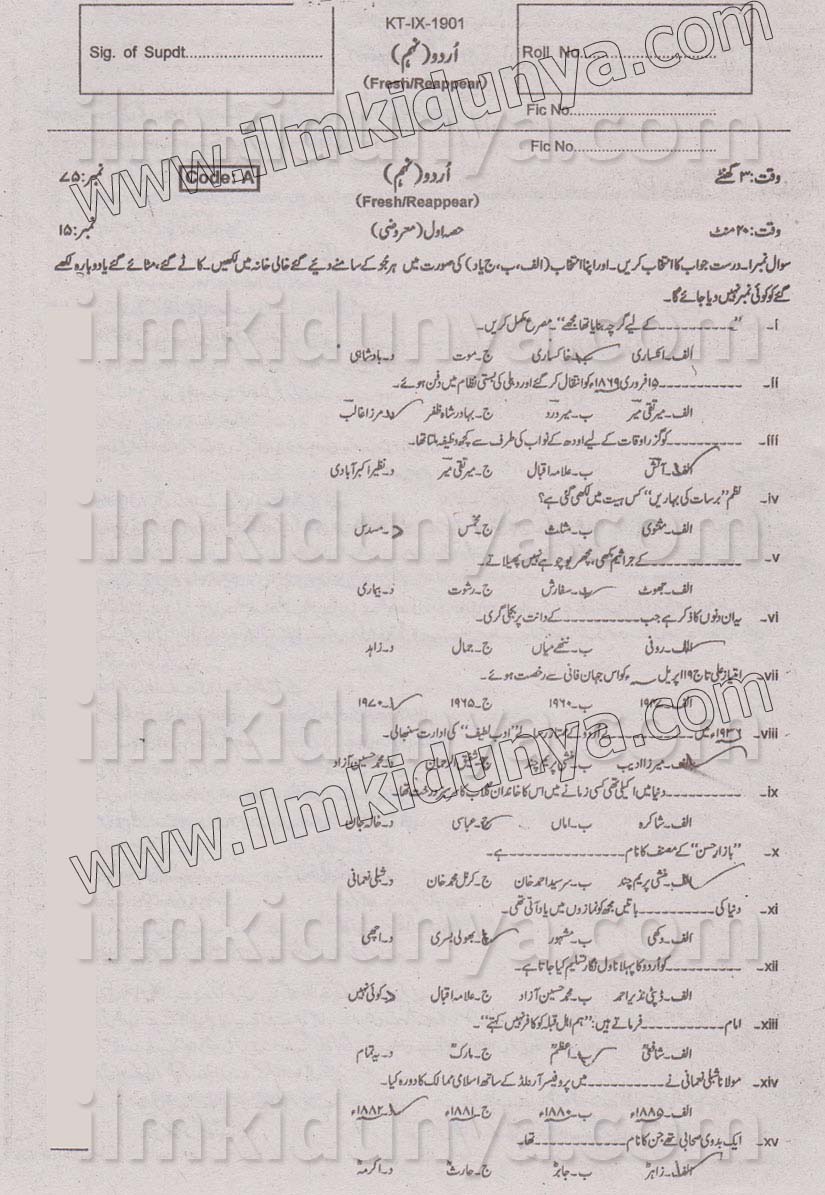 KT-IX-1901
Sig. of Supdt............................
اُردو (نہم)
Roll No............................
(Fresh/Reappear)
Fic No............................
Fic No............................
وقت: ۳ گھنٹے
اُردو (نہم)
Code: A
نمبر: ۷۵
(Fresh/Reappear)
وقت: ۲۰ منٹ حصہ اول (معروضی) نمبر: ۱۵
سوال نمبر ۱۔ درست جواب کا انتخاب کریں۔ اور اپنا انتخاب (الف، ب، ج یا د) کی صورت میں ہر جُز کے سامنے دیئے گئے خالی خانہ میں لکھیں۔ کاٹے گئے، مٹائے گئے یا دوبارہ لکھے
گئے کو کوئی نمبر نہیں دیا جائے گا۔
i۔ "__________ کے لیے گرچہ بنایا تھا مجھے"۔ مصرع مکمل کریں۔
الف۔ انکساری ب۔ خاکساری ج۔ موت د۔ بادشاہی
ii۔ __________ ۱۵ فروری ۱۸۶۹ء کو انتقال کر گئے اور دہلی کی بستی نظام میں دفن ہوئے۔
الف۔ میر تقی میر ب۔ میر درد ج۔ بہادر شاہ ظفر د۔ مرزا غالب
iii۔ __________ کو گزر اوقات کے لیے اودھ کے نواب کی طرف سے کچھ وظیفہ ملتا تھا۔
الف۔ آتش ب۔ علامہ اقبال ج۔ میر تقی میر د۔ نظیر اکبر آبادی
iv۔ نظم "برسات کی بہاریں" کس ہیت میں لکھی گئی ہے؟
الف۔ مثنوی ب۔ مثلث ج۔ مخمس د۔ مسدس
v۔ __________ کے جراثیم مکھی، مچھر یا چوہے نہیں پھیلاتے۔
الف۔ جھوٹ ب۔ سفارش ج۔ رشوت د۔ بیماری
vi۔ یہ ان دنوں کا ذکر ہے جب __________ کے دانت پر بجلی گری۔
الف۔ روفی ب۔ ننھے میاں ج۔ جمال د۔ زاہد
vii۔ امتیاز علی تاج ۱۹ اپریل ___ء کو اس جہان فانی سے رخصت ہوئے۔
الف۔ ب۔ ۱۹۶۰ ج۔ ۱۹۶۵ د۔ ۱۹۷۰
viii۔ ۱۹۳۶ء میں __________ نے اُردو کے ممتاز رسالے "ادب لطیف" کی ادارت سنبھالی۔
الف۔ میرزا ادیب ب۔ منشی پریم چند ج۔ شفیق الرحمان د۔ محمد حسین آزاد
ix۔ __________ دنیا میں اکیلی تھی کسی زمانے میں اس کا خاندان گلاب کا سرسبز درخت تھا۔
الف۔ شاکرہ ب۔ اماں ج۔ عباسی د۔ خالہ جان
x۔ "بازارِ حسن" کے مصنف کا نام __________ ہے۔
الف۔ منشی پریم چند ب۔ سرسید احمد خان ج۔ کرنل محمد خان د۔ شبلی نعمانی
xi۔ دنیا کی __________ باتیں مجھ کو نمازوں میں یاد آتی تھی۔
الف۔ دکھی ب۔ مشہور ج۔ بھولی بسری د۔ اچھی
xii۔ __________ کو اُردو کا پہلا ناول نگار تسلیم کیا جاتا ہے۔
الف۔ ڈپٹی نذیر احمد ب۔ محمد حسین آزاد ج۔ علامہ اقبال د۔ کوئی نہیں
xiii۔ امام __________ فرماتے ہیں: "ہم اہل قبلہ کو کافر نہیں کہتے"۔
الف۔ شافعیؒ ب۔ اعظمؒ ج۔ مالکؒ د۔ یہ تمام
xiv۔ مولانا شبلی نعمانی نے __________ میں پروفیسر آرنلڈ کے ساتھ اسلامی ممالک کا دورہ کیا۔
الف۔ ۱۸۸۵ء ب۔ ۱۸۸۰ء ج۔ ۱۸۸۱ء د۔ ۱۸۸۲ء
xv۔ ایک بدوی صحابی تھے جن کا نام __________ تھا۔
الف۔ زاہرؓ ب۔ جابرؓ ج۔ حارثؓ د۔ اکرمہؓ
www.ilmkidunya.com
www.ilmkidunya.com
ilmkidunya.com
ilmkidunya.com
ilmkidunya.com
ilmkidunya.com
ilmkidunya.com
ilmkidunya.com